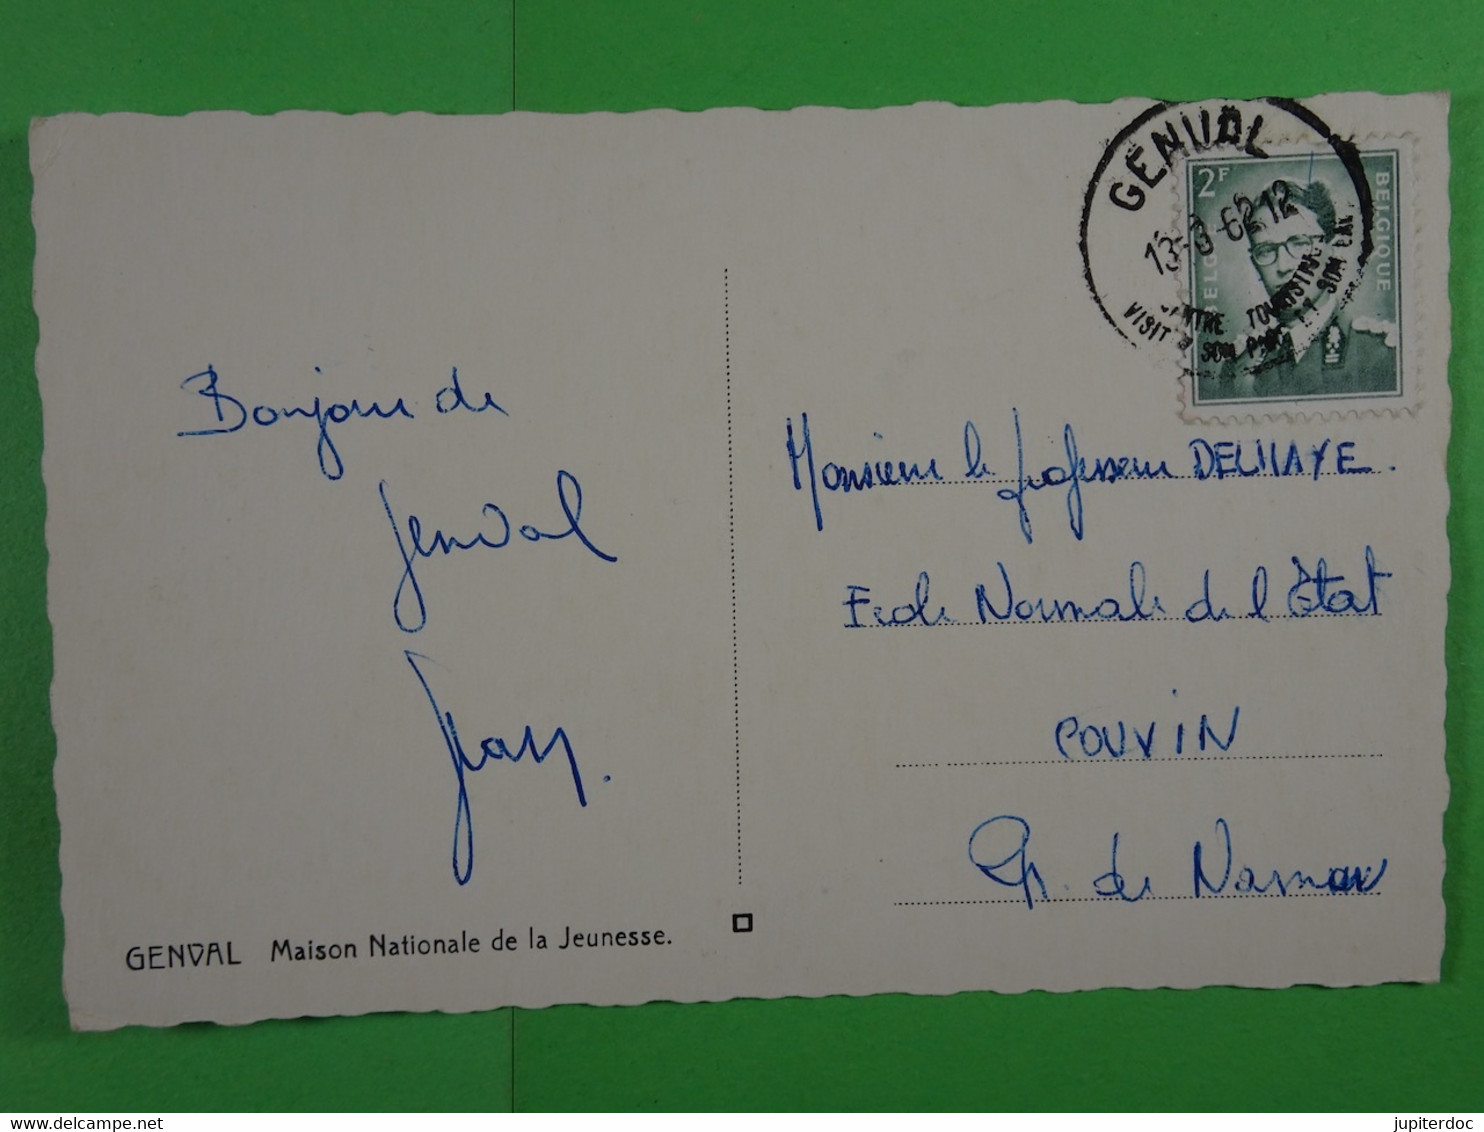 GENVAL
13-3-62 12
CENTRE TOURISTIQUE
VISITEZ SON PARC ET SON LAC
2F
BELGIQUE
BELG
Bonjour de
Genval
Monsieur le professeur DELHAYE.
Ecole Normale de l'Etat
COUVIN
Pr. de Namur
GENVAL Maison Nationale de la Jeunesse.
www.delcampe.net
jupiterdoc